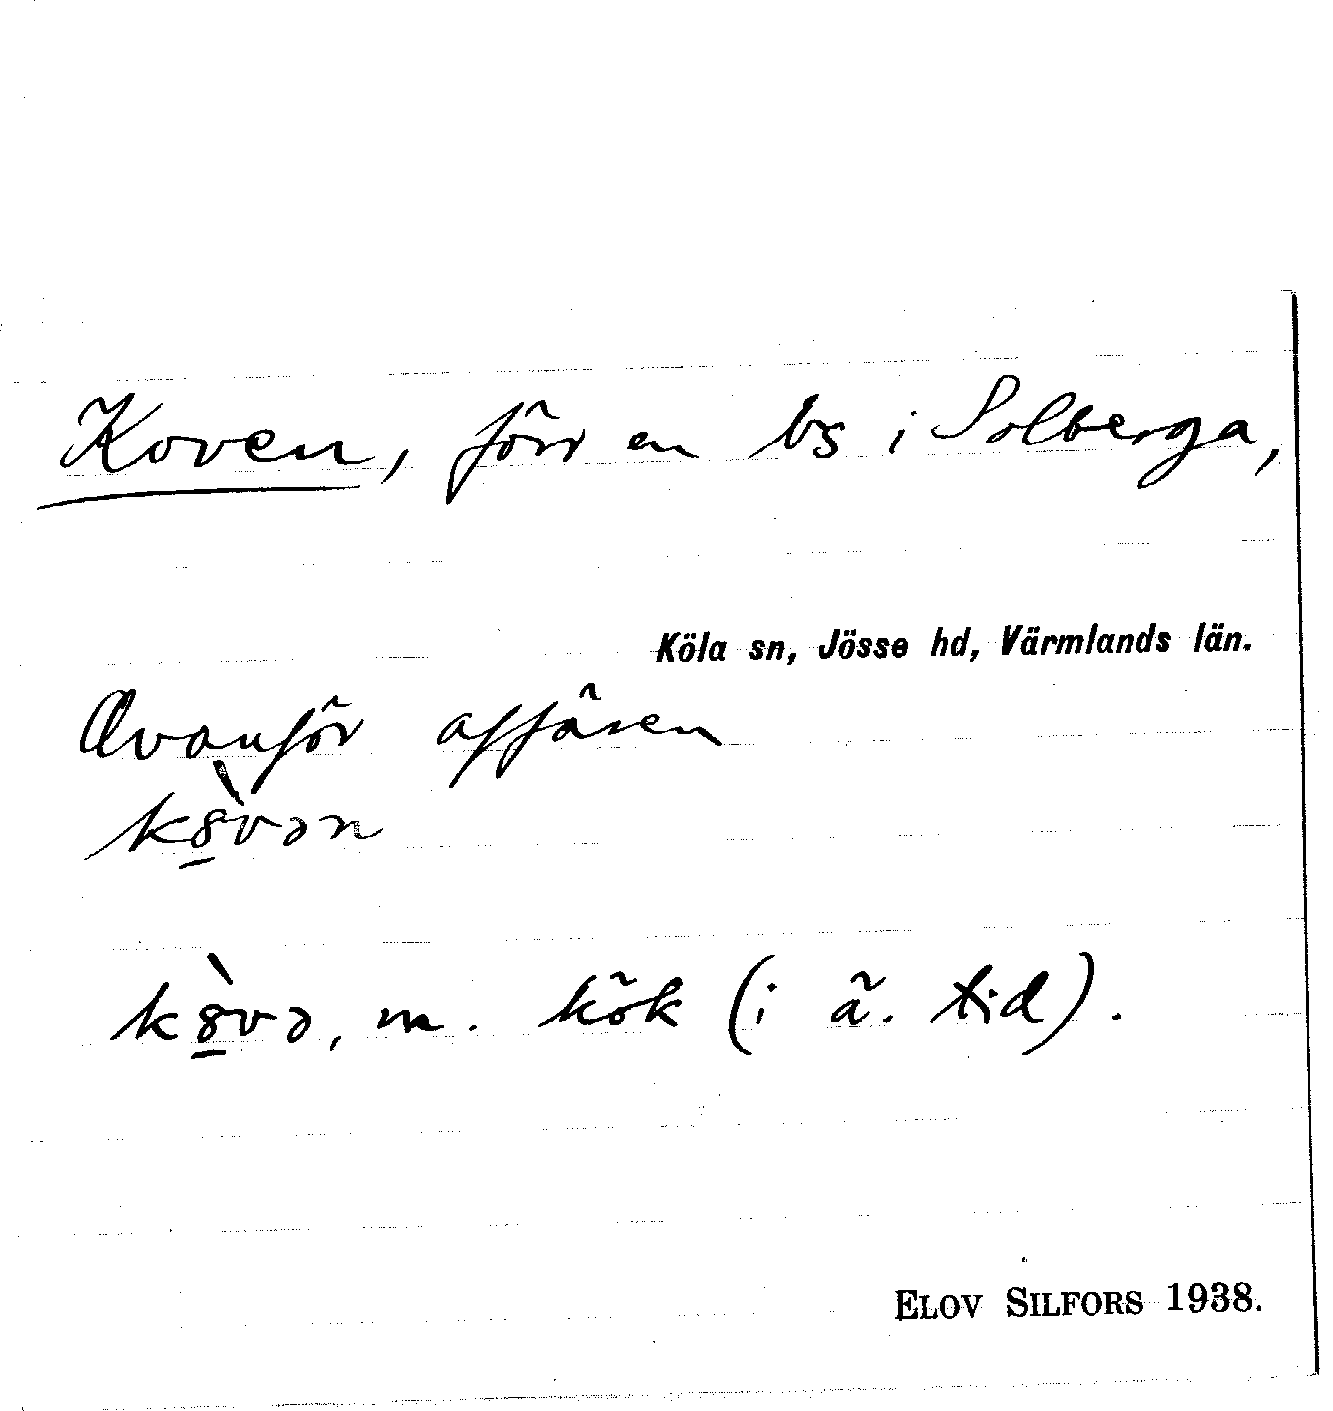 Koven, förr en bs i Solberga,
Köla sn, Jösse hd, Värmlands län.
Ovanför affären
kȣ̱̀vən
kȣ̱̀və, m. kök (i ä. tid).
ELOV SILFORS 1938.